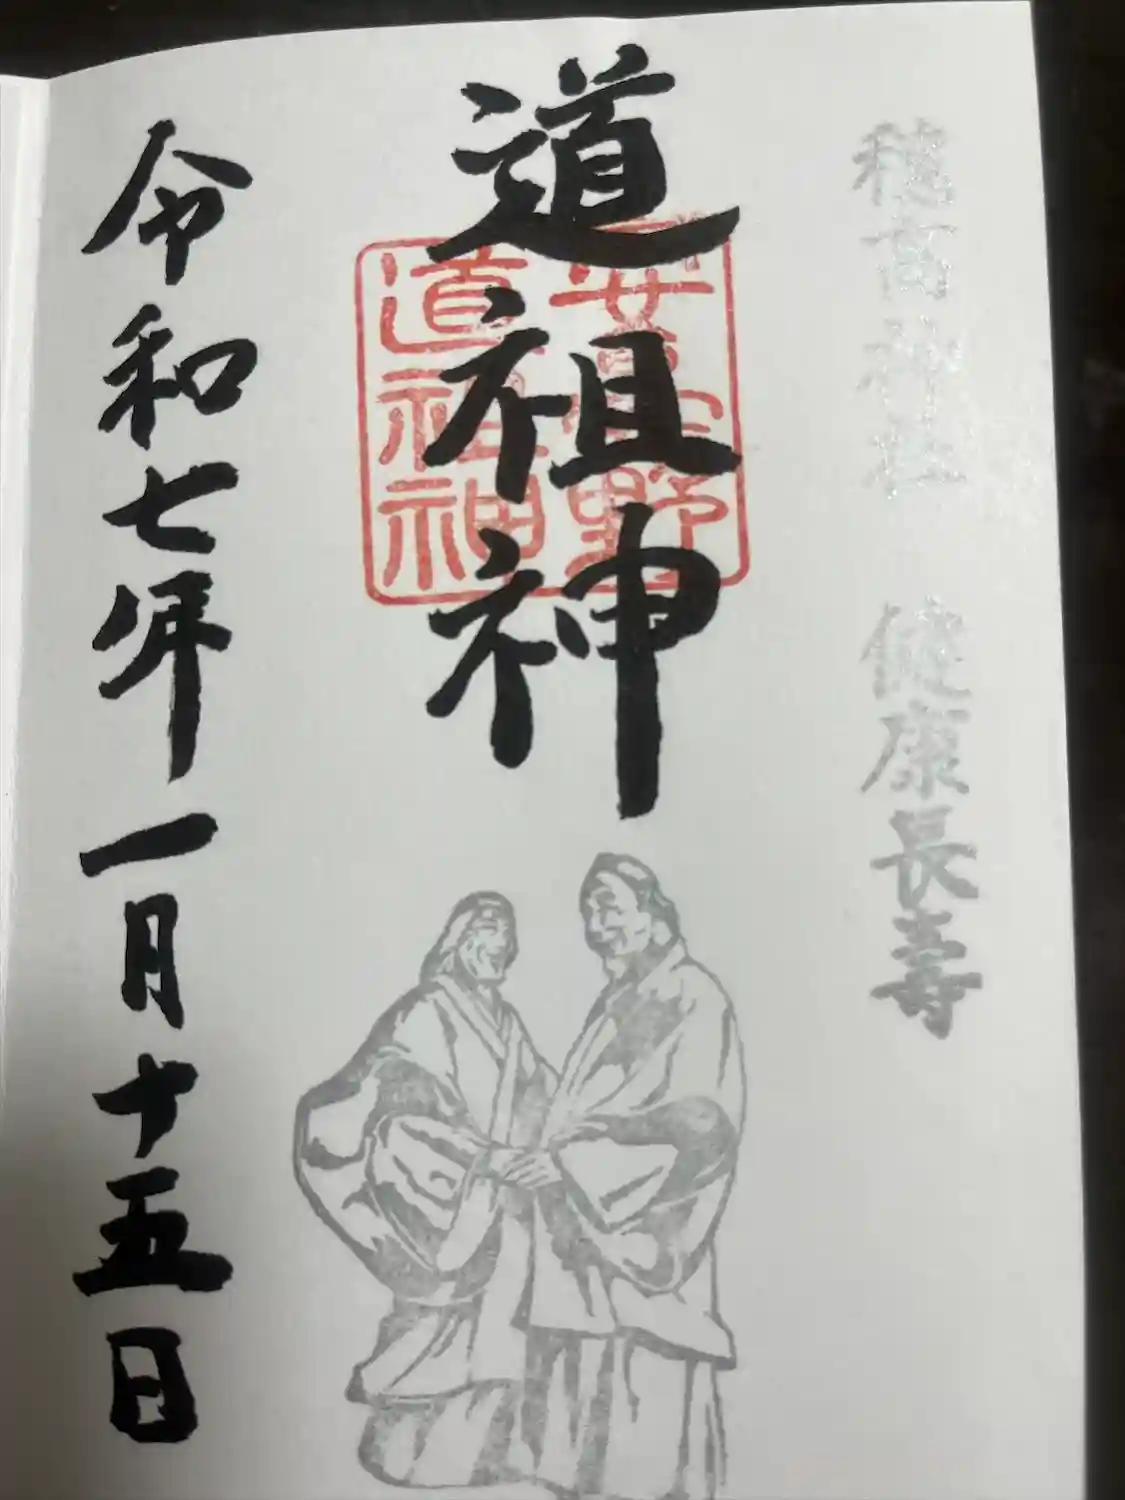 穂高神社 健康長壽
道祖神
安曇野
道祖神
令和七年一月十五日